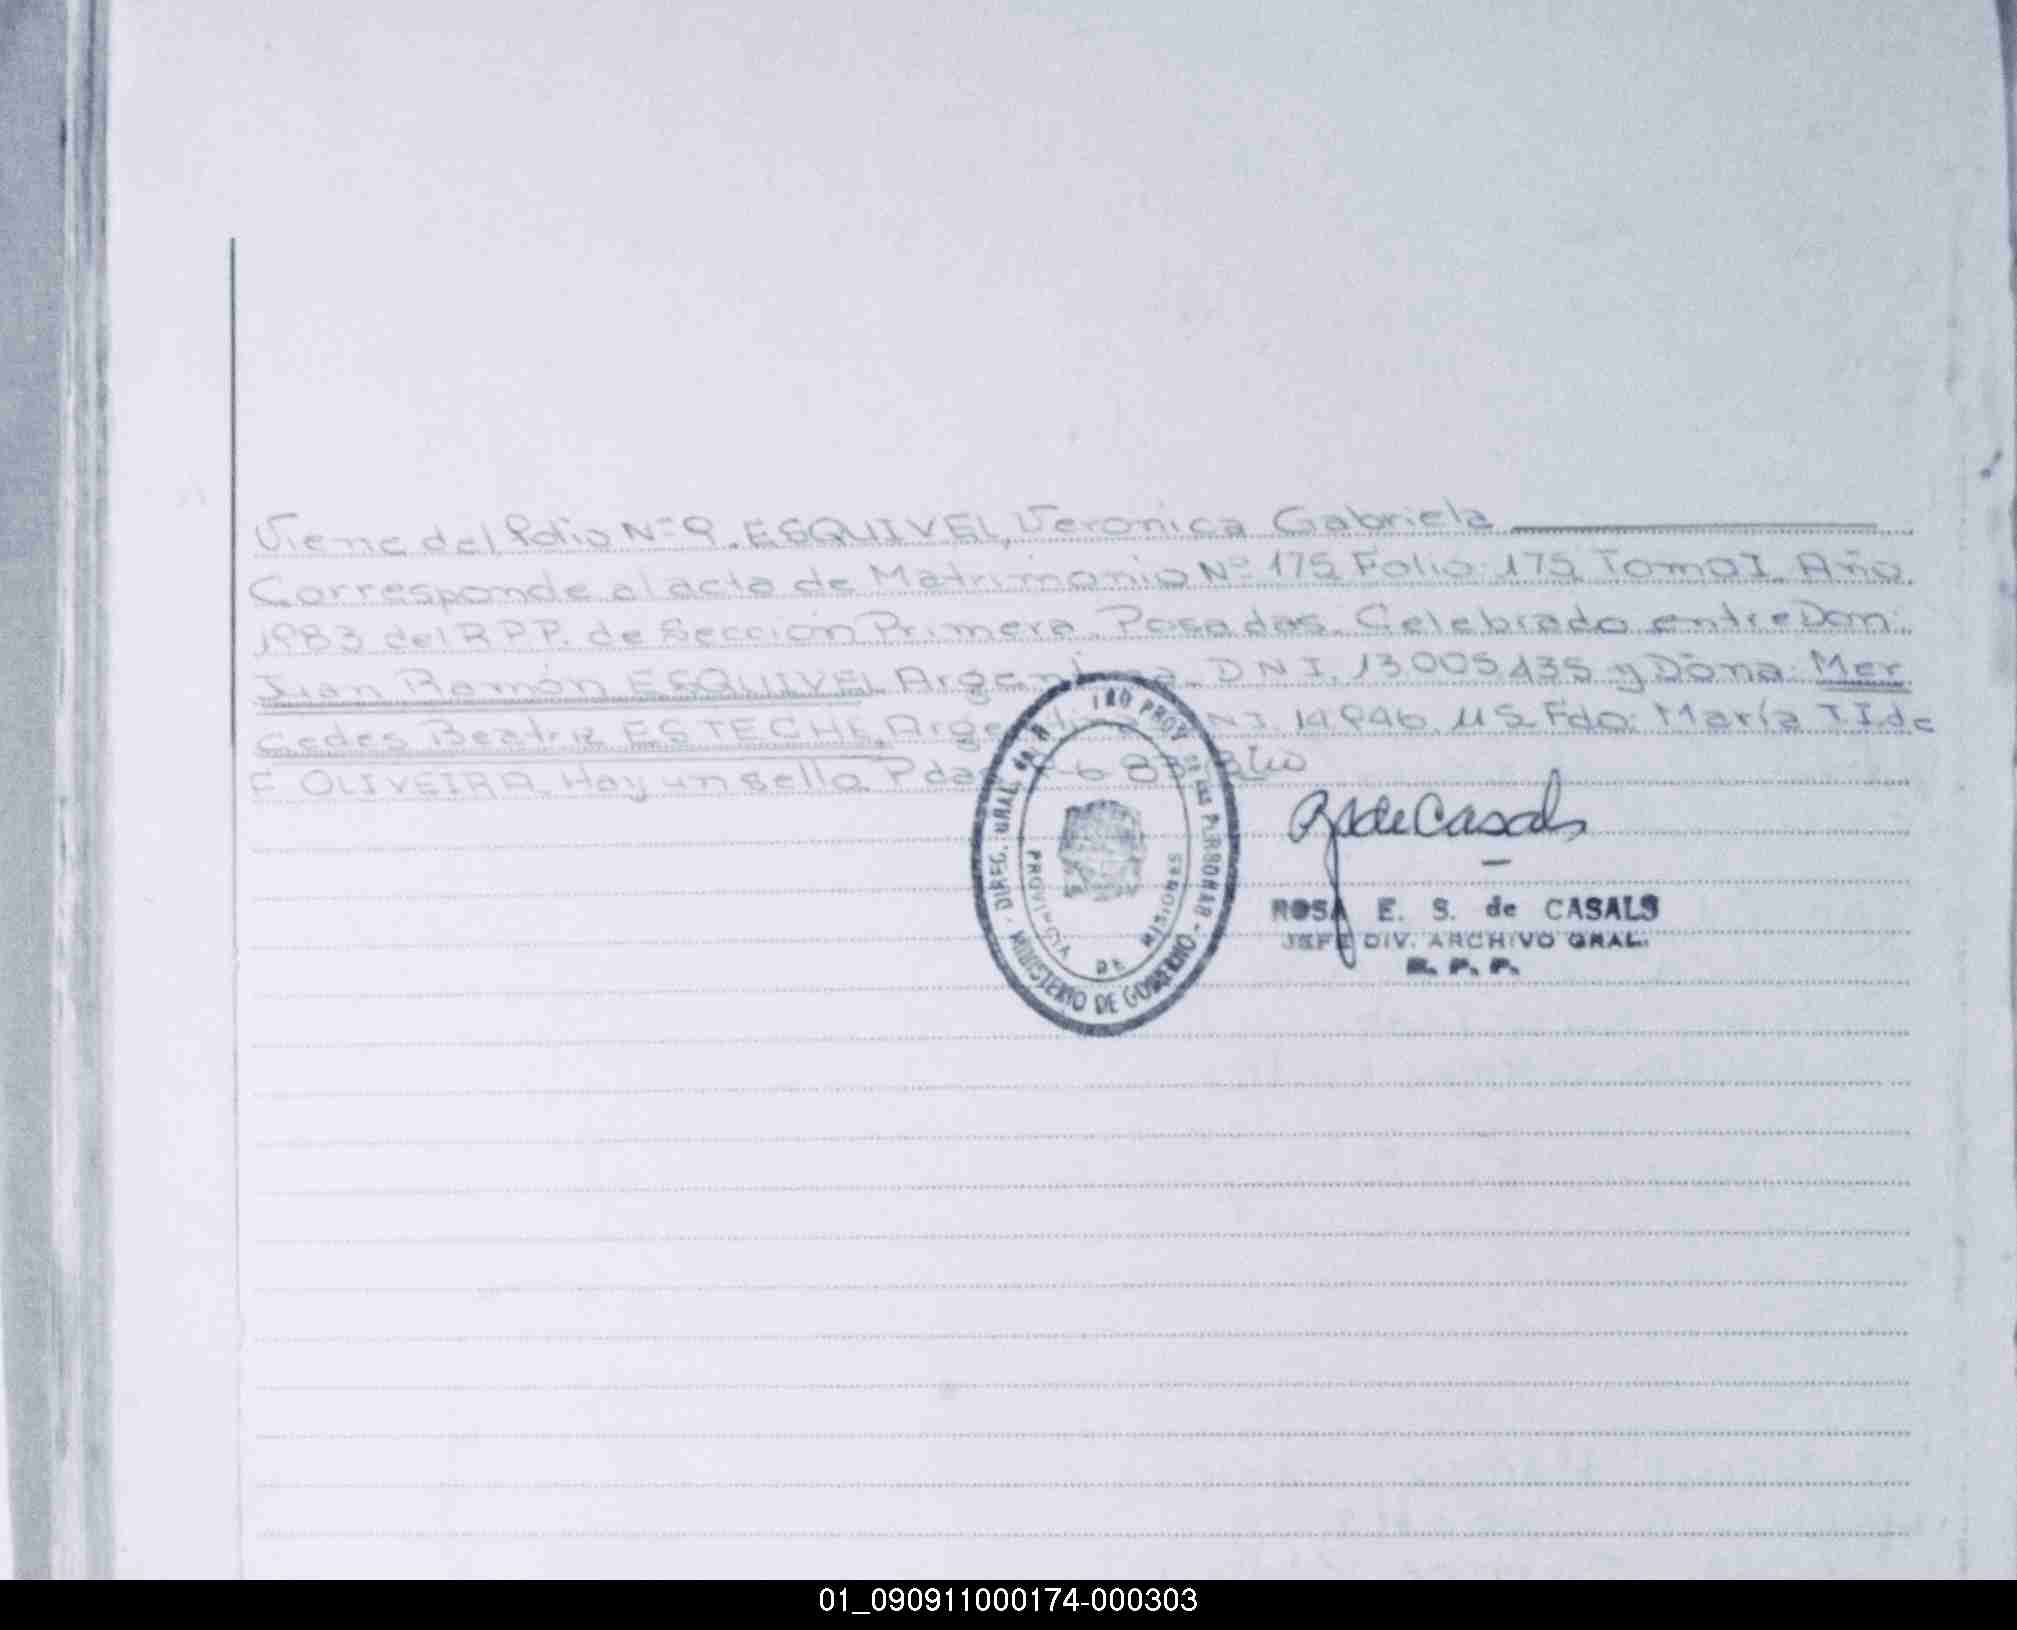 Viene del folio Nº 9. ESQUIVEL, Veronica Gabriela
Corresponde al acta de Matrimonio Nº 175 Folio: 175 Tomo I. Año
1983 del R.P.P. de Sección Primera. Posadas. Celebrado entre Don:
Juan Ramón ESQUIVEL Argentina. D N I. 13.005.435 y Doña: Mer
cedes Beatriz ESTECHE, N I. 14.946. Fdo: María T.I. de
E OLIVEIRA. Hay un sello. Pdas 6 83
DIREC. GRAL. PROV. de las PERSONAS - MINISTERIO DE GOBIERNO -
PROVINCIA DE MISIONES
R S de Casals
ROSA E. S. de CASALS
JEFE DIV. ARCHIVO GRAL.
R. P. P.
01_090911000174-000303